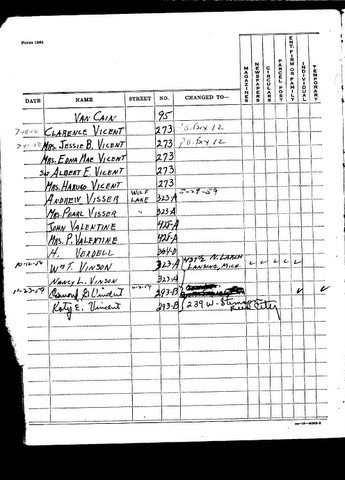 Form 1564
DATE NAME STREET NO. CHANGED TO— MAGAZINES NEWSPAPERS CIRCULARS PARCEL POST ENT. FIRM OR FAMILY INDIVIDUAL TEMPORARY
VAN CAIN 95
CLARENCE VICENT 273 Box 12
MRS. JESSIE B. VICENT 273 Box 12
MRS. EDNA MAE VICENT 273
ALBERT E. VICENT 273
MRS. HAROLD VICENT 273
ANDREW VISSER WOLF LAKE 323-A 59
PEARL VISSER " 323-A
JOHN VALENTINE 425-A
MRS. P. VALENTINE 425-A
H. VERDELL 364-D
10-12-59 WM F. VINSON 323-A 437½ N. LARCH LANSING, MICH
NANCY L. VINSON 323-A
11-23-59 Vincent 293-B
Katy E. Vincent 293-B (239 W. Reed City